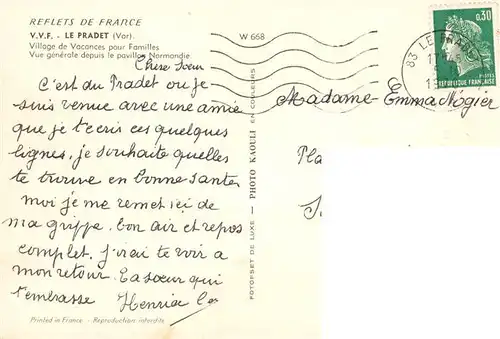 REFLETS DE FRANCE
V.V.F. - LE PRADET (Var).
Village de Vacances pour Familles
Vue générale depuis le pavillon Normandie
W 668
0,30
POSTES
REPUBLIQUE FRANÇAISE
83 LE PRADET
Chère Soeur
C'est du Pradet ou je
suis venue avec une amie
que je t'ecris ces quelques
lignes, je souhaite quelles
te trouve en bonne santé
moi je me remet ici de
ma grippe. bon air et repos
complet. j'irai te voir a
mon retour. Ta soeur qui
t'embrasse Henria
Madame Emma Nogier
Pla
PHOTOFSET DE LUXE — PHOTO KAOULI EN COULEURS
Printed in France - Reproduction interdite